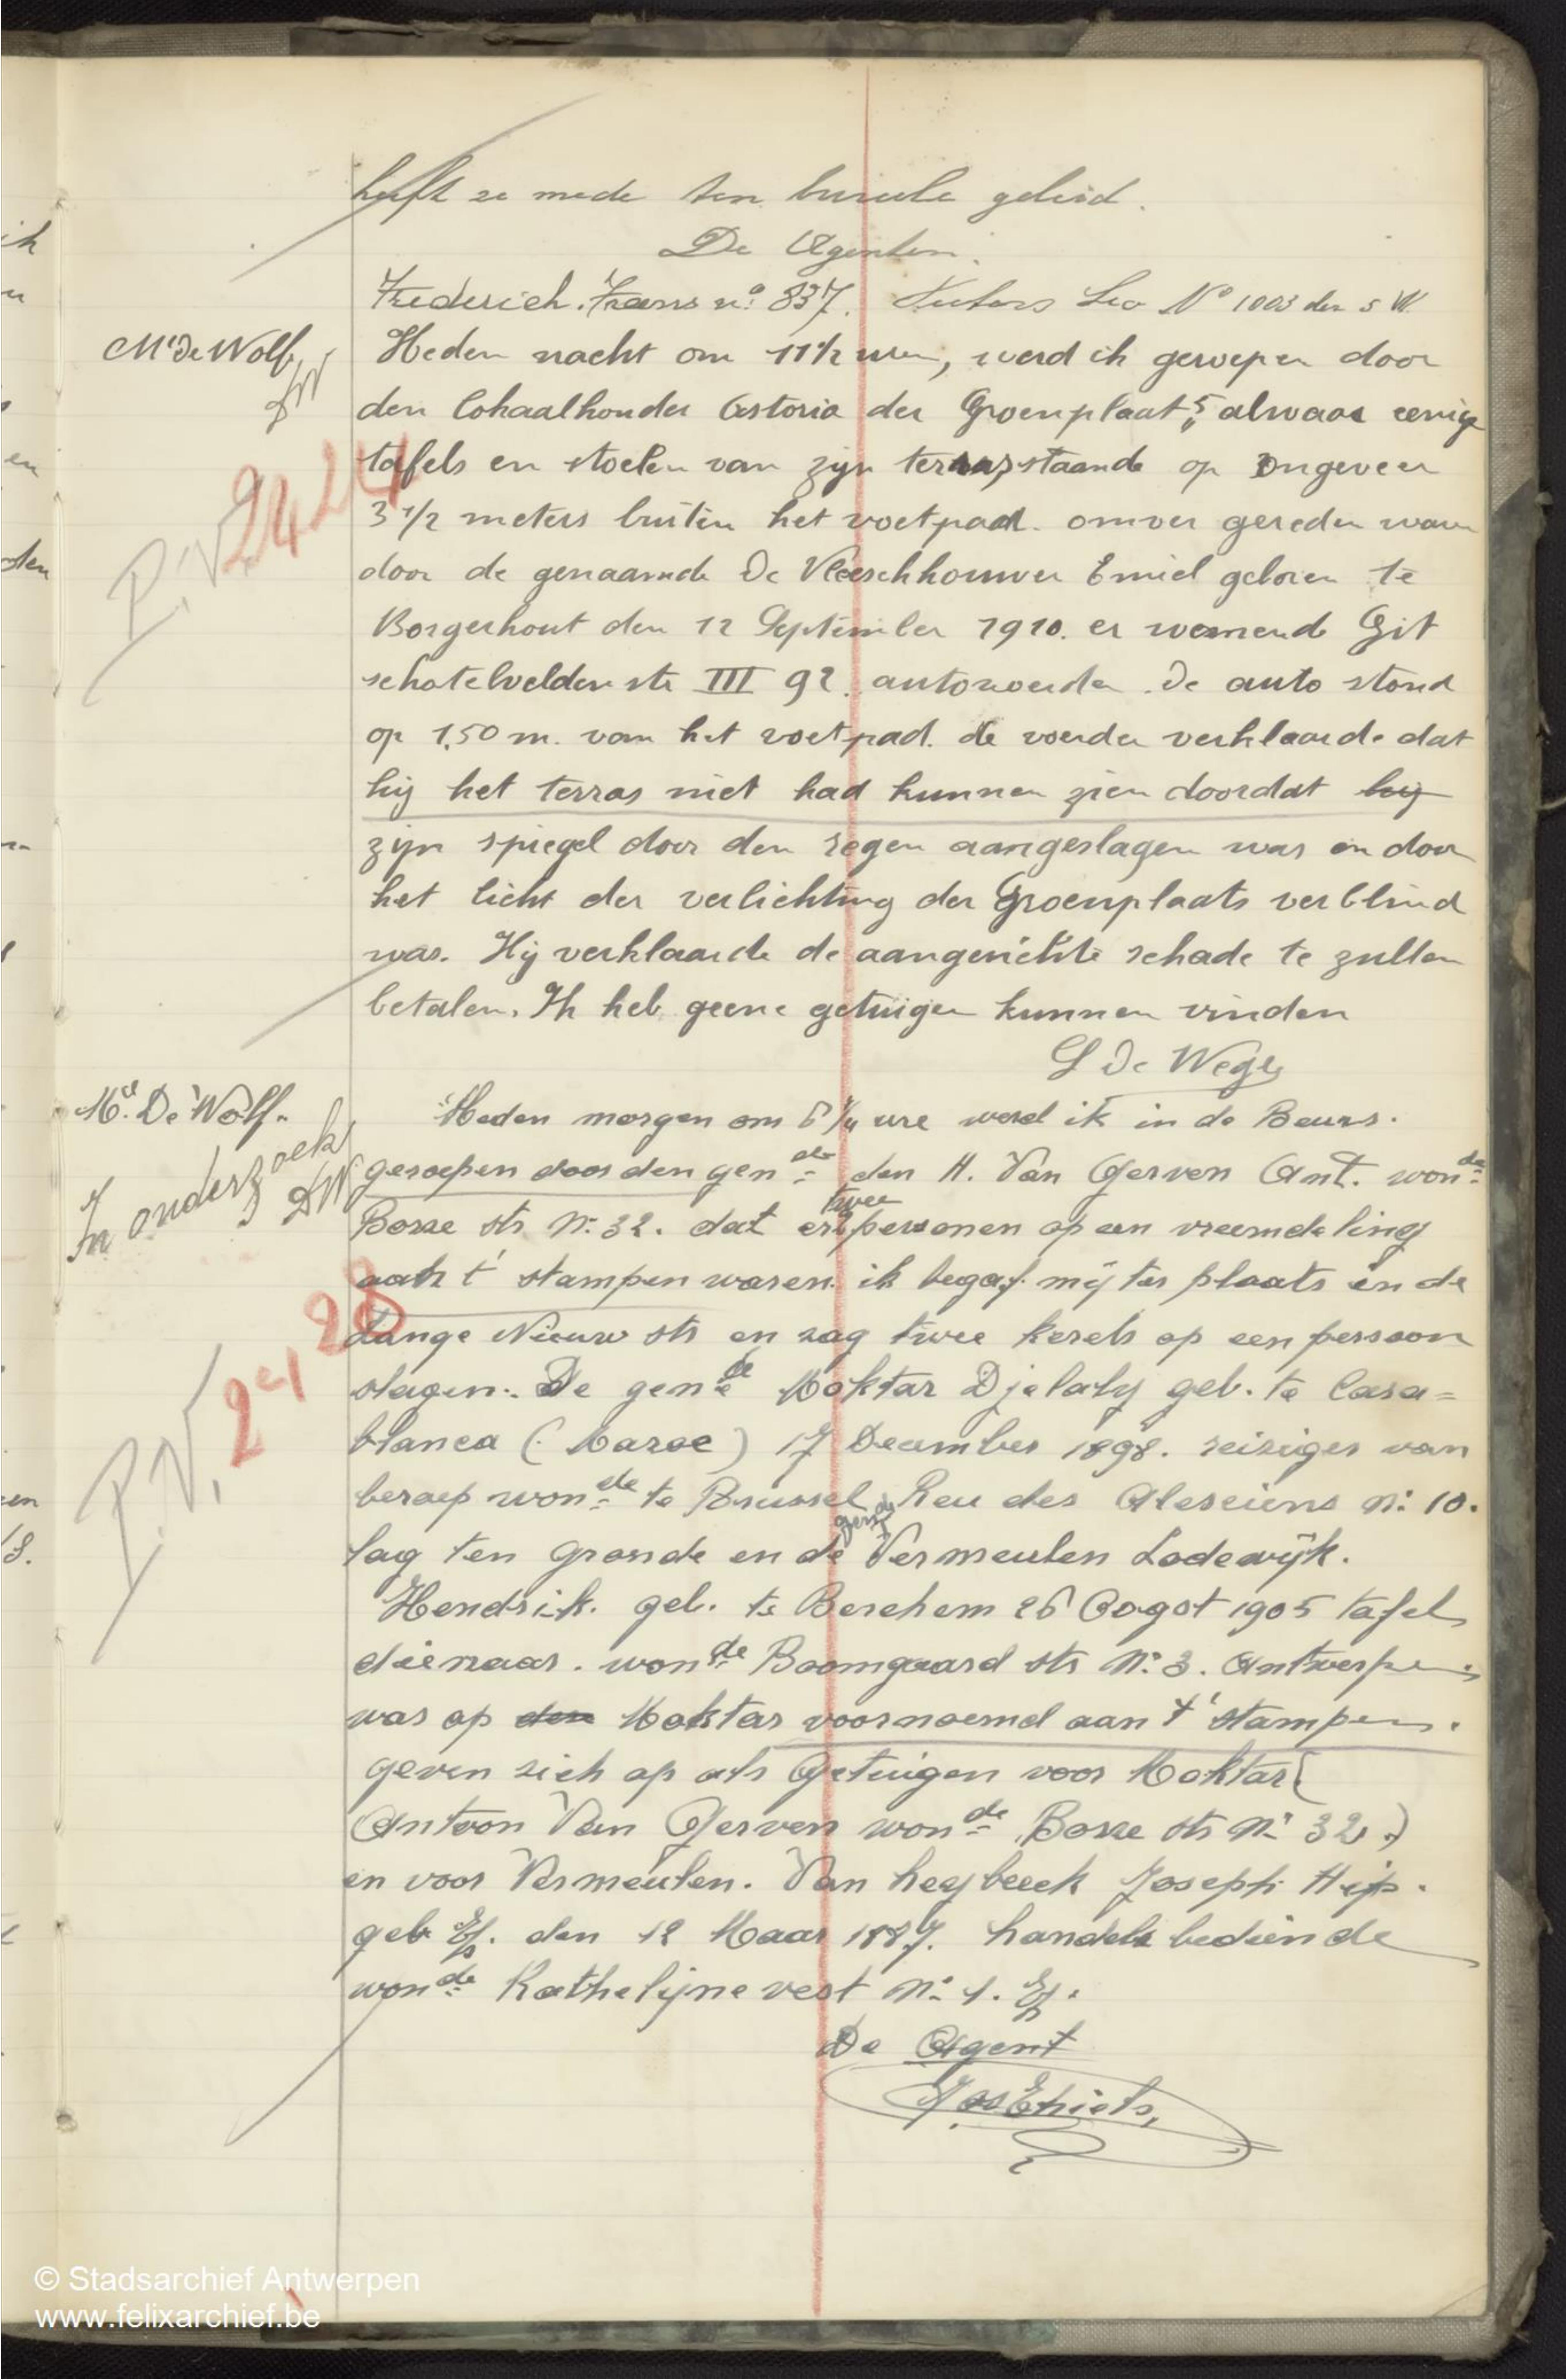 heeft ze mede ten bureele geleid.
De Agenten.
Frederich. Frans nº 837. Leo Nº 1003 der 5 W.
Mr De Wolf
DW
Heden nacht om 11½ uren, werd ik geroepen door
den lokaalhouder Astoria der Groenplaats 5, alwaar eenige
tafels en stoelen van zijn terras, staande op ongeveer
3 1/2 meters buiten het voetpad. omver gereden waren
door de genaamde De Vleeschhouwer Emiel geboren te
Borgerhout den 12 September 1910. er wonende Git
schotelvelden str III 92. autovoerder. De auto stond
op 1.50 m. van het voetpad. de voerder verklaarde dat
hij het terras niet had kunnen zien doordat hij
zijn spiegel door den regen aangeslagen was en door
het licht der verlichting der Groenplaats verblind
was. Hij verklaarde de aangerichte schade te zullen
betalen. Ik heb geene getuigen kunnen vinden
P.V. 2424
Mr. De Wolf.
In onderzoek
DW
Heden morgen om 6 ¼ ure werd ik in de Beurs.
geroepen door den gende den H. Van Gerven Ant. wonde
Bosse str Nº 32. dat er twee personen op een vreemdeling
aan t' stampen waren. ik begaf mij ter plaats in de
Lange Nieuw str en zag twee kerels op een persoon
slagen. De gende Moktar Djelaly geb. te Casa=
blanca (Maroc) 17 December 1898. reiziger van
beroep wonde te Brussel Reu des Alexiens Nº 10.
lag ten gronde en de gende Vermeulen Lodewijk.
Hendrik. geb. te Berchem 26 Oogst 1905 tafel
dienaar. wonde Boomgaard str Nº 3. Antwerpen
was op den Moktar voornoemd aan t' stampen.
geven zich op als Getuigen voor Moktar (
Antoon Van Gerven wonde Bosse str Nº 32.)
en voor Vermeulen. Van heybeeck Joseph Hip.
geb. den 12 Maar 1887. handelsbediende
wonde Kathelijne vest Nº 1.
De Agent
P.V. 2428
© Stadsarchief Antwerpen
www.felixarchief.be